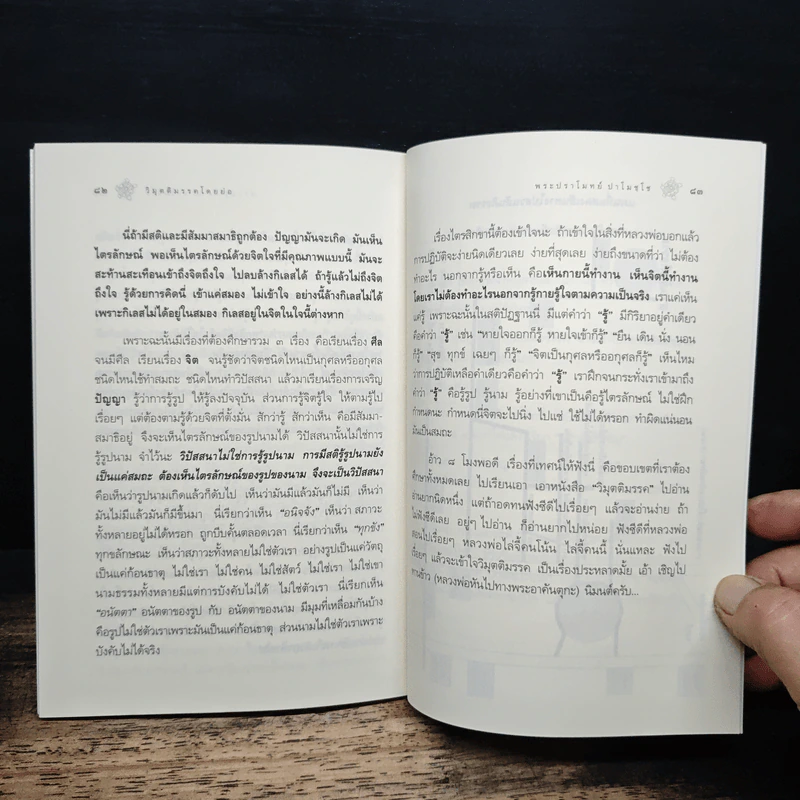 ๘๒
วิมุตติมรรคโดยย่อ
นี่ถ้ามีสติและมีสัมมาสมาธิถูกต้อง ปัญญามันจะเกิด มันเห็น
ไตรลักษณ์ พอเห็นไตรลักษณ์ด้วยจิตใจที่มีคุณภาพแบบนี้ มันจะ
สะท้านสะเทือนเข้าถึงจิตถึงใจ ไปลบล้างกิเลสได้ ถ้ารู้แล้วไม่ถึงจิต
ถึงใจ รู้ด้วยการคิดนี่ เข้าแค่สมอง ไม่เข้าใจ อย่างนี้ล้างกิเลสไม่ได้
เพราะกิเลสไม่ได้อยู่ในสมอง กิเลสอยู่ในจิตในใจนี้ต่างหาก
เพราะฉะนั้นมีเรื่องที่ต้องศึกษารวม ๓ เรื่อง คือเรียนเรื่อง ศีล
จนมีศีล เรียนเรื่อง จิต จนรู้ชัดว่าจิตชนิดไหนเป็นกุศลหรืออกุศล
ชนิดไหนใช้ทำสมถะ ชนิดไหนทำวิปัสสนา แล้วมาเรียนเรื่องการเจริญ
ปัญญา รู้ว่าการรู้รูป ให้รู้ลงปัจจุบัน ส่วนการรู้จิตรู้ใจ ให้ตามรู้ไป
เรื่อยๆ แต่ต้องตามรู้ด้วยจิตที่ตั้งมั่น สักว่ารู้ สักว่าเห็น คือมีสัมมา-
สมาธิอยู่ จึงจะเห็นไตรลักษณ์ของรูปนามได้ วิปัสสนานั้นไม่ใช่การ
รู้รูปนาม จำไว้นะ วิปัสสนาไม่ใช่การรู้รูปนาม การมีสติรู้รูปนามยัง
เป็นแค่สมถะ ต้องเห็นไตรลักษณ์ของรูปของนาม จึงจะเป็นวิปัสสนา
คือเห็นว่ารูปนามเกิดแล้วก็ดับไป เห็นว่ามันมีแล้วมันก็ไม่มี เห็นว่า
มันไม่มีแล้วมันก็มีขึ้นมา นี่เรียกว่าเห็น “อนิจจัง” เห็นว่า สภาวะ
ทั้งหลายอยู่ไม่ได้หรอก ถูกบีบคั้นตลอดเวลา นี่เรียกว่าเห็น “ทุกขัง”
ทุกขลักษณะ เห็นว่าสภาวะทั้งหลายไม่ใช่ตัวเรา อย่างรูปเป็นแค่วัตถุ
เป็นแค่ก้อนธาตุ ไม่ใช่เรา ไม่ใช่คน ไม่ใช่สัตว์ ไม่ใช่เรา ไม่ใช่เขา
นามธรรมทั้งหลายมีแต่การบังคับไม่ได้ ไม่ใช่ตัวเรา นี่เรียกเห็น
“อนัตตา” อนัตตาของรูป กับ อนัตตาของนาม มีมุมที่เหลื่อมกันบ้าง
คือรูปไม่ใช่ตัวเราเพราะมันเป็นแค่ก้อนธาตุ ส่วนนามไม่ใช่ตัวเราเพราะ
บังคับไม่ได้จริง
พระปราโมทย์ ปาโมชฺโช
๘๓
เรื่องไตรสิกขานี้ต้องเข้าใจนะ ถ้าเข้าใจในสิ่งที่หลวงพ่อบอกแล้ว
การปฏิบัติจะง่ายนิดเดียวเลย ง่ายที่สุดเลย ง่ายถึงขนาดที่ว่า ไม่ต้อง
ทำอะไร นอกจากรู้หรือเห็น คือเห็นกายนี้ทำงาน เห็นจิตนี้ทำงาน
โดยเราไม่ต้องทำอะไรนอกจากรู้กายรู้ใจตามความเป็นจริง เราแค่เห็น
แค่รู้ เพราะฉะนั้นในสติปัฏฐานนี้ มีแต่คำว่า “รู้” มีกิริยาอยู่คำเดียว
คือคำว่า “รู้” เช่น “หายใจออกก็รู้ หายใจเข้าก็รู้” “ยืน เดิน นั่ง นอน
ก็รู้” “สุข ทุกข์ เฉยๆ ก็รู้” “จิตเป็นกุศลหรืออกุศลก็รู้” เห็นไหม
ว่าการปฏิบัติเหลือคำเดียวคือคำว่า “รู้” เราฝึกจนกระทั่งเราเข้ามาถึง
คำว่า “รู้” คือรู้รูป รู้นาม รู้อย่างที่เขาเป็นคือรู้ไตรลักษณ์ ไม่ใช่ฝึก
กำหนดนะ กำหนดนี้จิตจะไปนิ่ง ไปแช่ ใช้ไม่ได้หรอก ทำผิดแน่นอน
มันเป็นสมถะ
อ้าว ๘ โมงพอดี เรื่องที่เทศน์ให้ฟังนี่ คือขอบเขตที่เราต้อง
ศึกษาทั้งหมดเลย ไปเรียนเอา เอาหนังสือ “วิมุตติมรรค” ไปอ่าน
อ่านยากนิดหนึ่ง แต่ถ้าอดทนฟังซีดีไปเรื่อยๆ แล้วจะอ่านง่าย ถ้า
ไม่ฟังซีดีเลย อยู่ๆ ไปอ่าน ก็อ่านยากไปหน่อย ฟังซีดีที่หลวงพ่อ
สอนไปเรื่อยๆ หลวงพ่อไล่จี้คนโน้น ไล่จี้คนนี้ นั่นแหละ ฟังไป
เรื่อยๆ แล้วจะเข้าใจวิมุตติมรรค เป็นเรื่องประหลาดมั้ย เอ้า เชิญไป
ทานข้าว (หลวงพ่อหันไปทางพระอาคันตุกะ) นิมนต์ครับ...